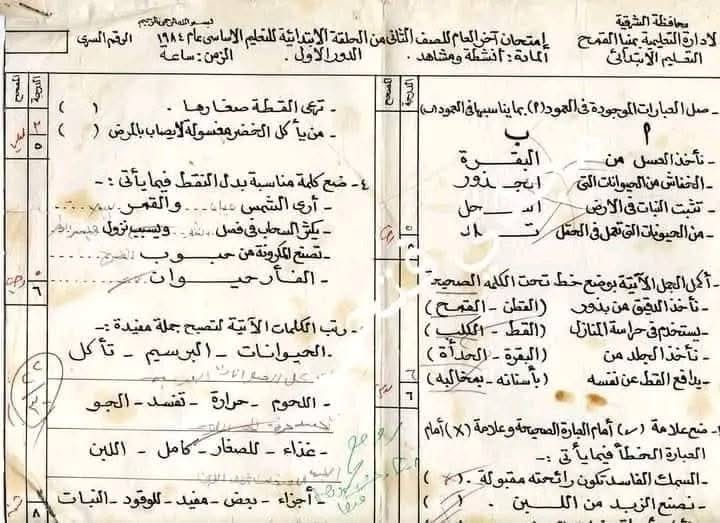 بسم الله الرحمن الرحيم
محافظة الشرقية
الادارة التعليمية بمنيا القمح
التعليم الابتدائي
امتحان آخر العام للصف الثاني من الحلقة الابتدائية للتعليم الاساسى عام ١٩٨٤
المادة: أنشطة ومشاهد . الدور الأول . الزمن: ساعة
الرقم السرى
الدرجة
المصحح
- صل العبارات الموجودة فى العمود (أ) بما يناسبها فى العمود (ب)
أ ب
- نأخذ العسل من البقرة
- الخفاش من الحيوانات التى الجذور
- تثبت النبات فى الأرض النحل
- من الحيوانات التى تعمل فى الحقل تلد
- أكمل الجمل الآتية بوضع خط تحت الكلمه الصحيحة
- نأخذ الدقيق من بذور (القطن - القمح)
- يستخدم فى حراسة المنازل (القط - الكلب)
- نأخذ الجلد من (البقرة - الحدأة)
- يدافع القط عن نفسه (بأسنانه - بمخالبه)
- ضع علامة (✓) أمام العبارة الصحيحة وعلامة (X) أمام
العبارة الخطأ فيما يأتى :-
- السمك الفاسد تكون رائحته مقبولة . (X)
- نصنع الزبد من اللبن . ( )
الدرجة
المصحح
- ترعى القطة صغارها . ( )
- من يأكل الخضر مغسولة لا يصاب بالمرض ( )
٤- ضع كلمة مناسبة بدل النقط فيما يأتى :-
- أرى الشمس والقمر
- يكثر السحاب فى فصل ويسبب نزول
- تصنع المكرونة من حبوب
- الفأر حيوان
- رتب الكلمات الآتية لتصبح جملة مفيدة :-
- الحيوانات - البرسيم - تأكل
- اللحوم - حرارة - تفسد - الجو
- غذاء - للصغار - كامل - اللبن
- أجزاء - بعض - مفيد - للوقود - النبات
٣
٥
٥
٦
٢٢
٣٠
٨
٥
٦
٦